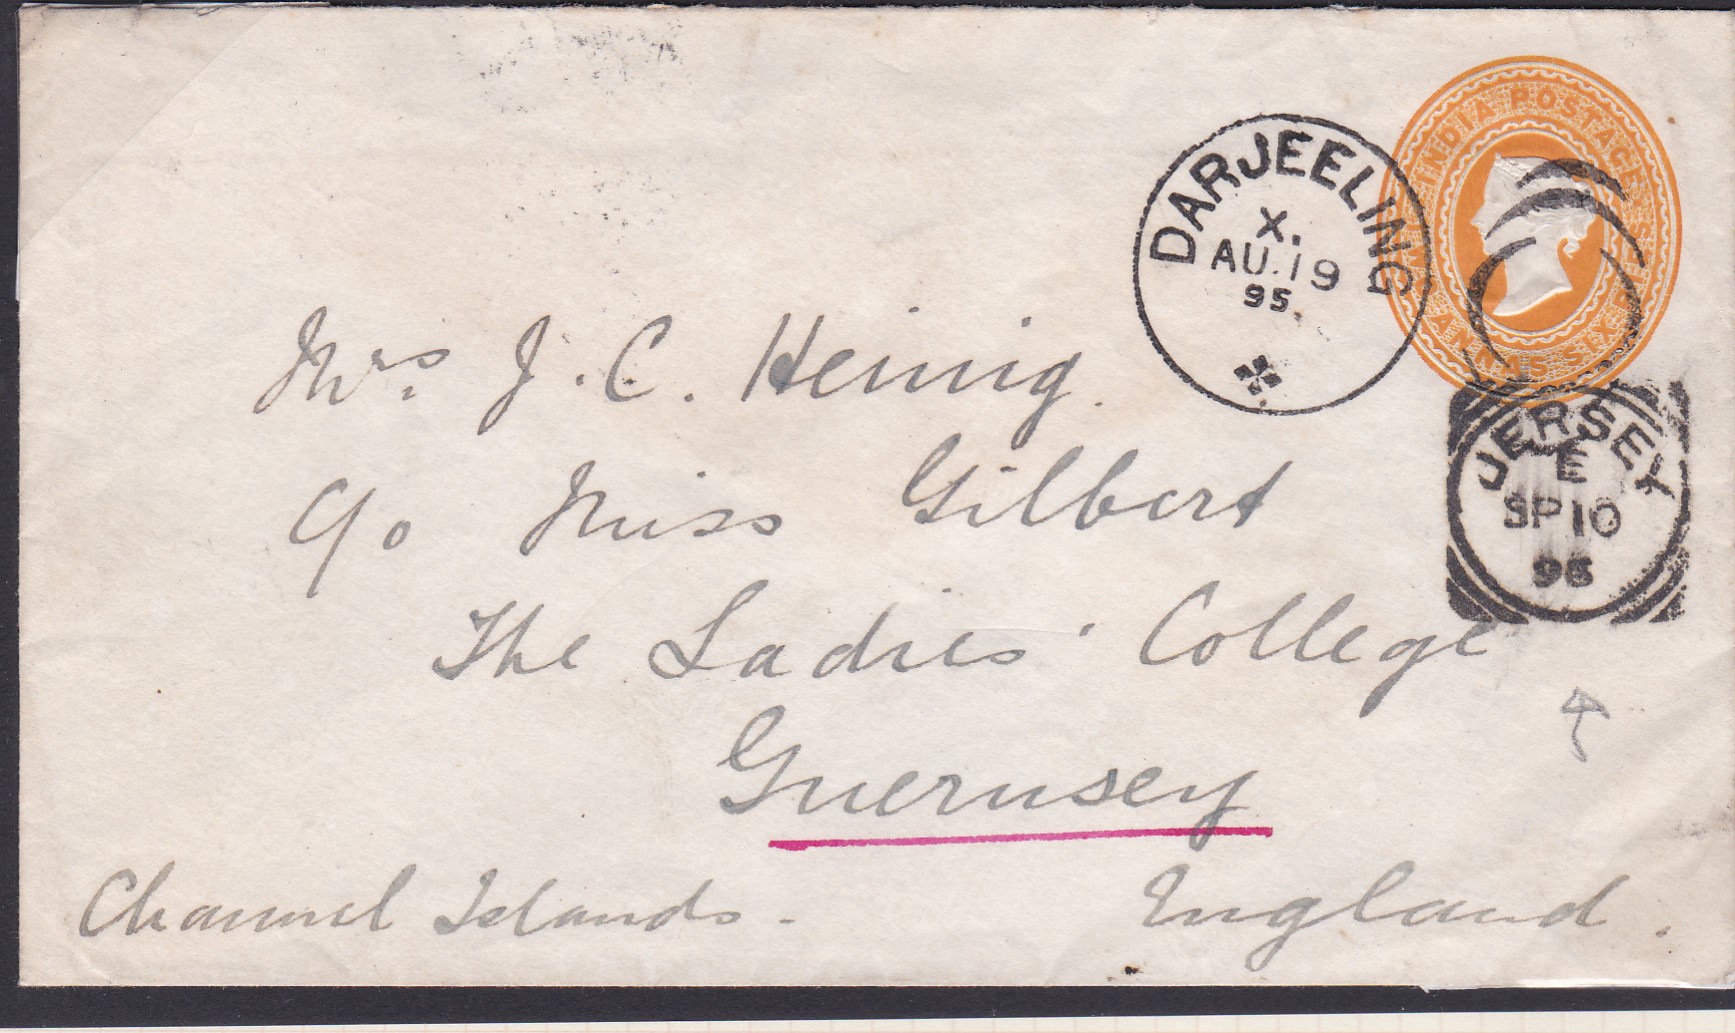 INDIA POSTAGE
TWO ANNAS SIX PIES
DARJEELING
X.
AU.19
95.
JERSEY
E
SP 10
95
Mrs. J. C. Heinig.
c/o Miss Gilbert
The Ladies' College
Guernsey
Channel Islands - England.